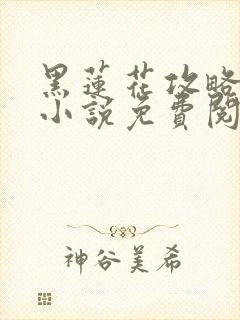 黑蓮花攻略
小說免費閱
神谷美希